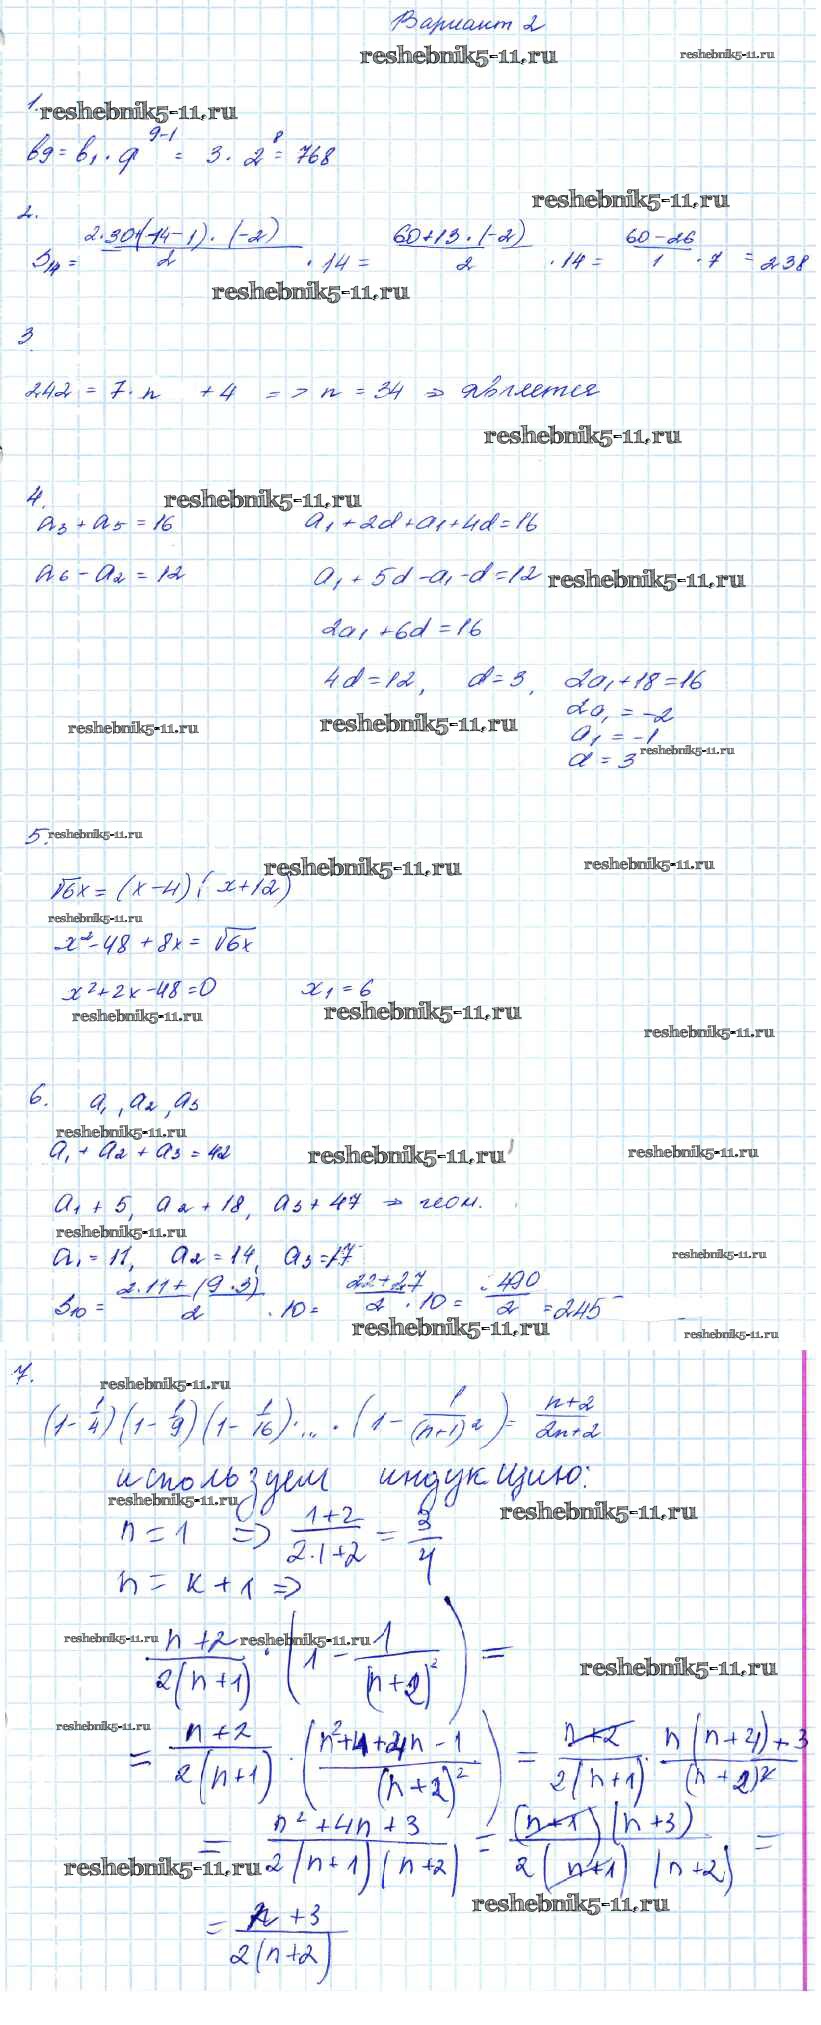 Вариант 2
reshebnik5-11.ru reshebnik5-11.ru
1. reshebnik5-11.ru
b9 = b1 · q^(9-1) = 3 · 2^8 = 768
reshebnik5-11.ru
2.
S14 = (2·30+(14-1)·(-2))/2 · 14 = (60+13·(-2))/2 · 14 = (60-26)/1 · 7 = 238
reshebnik5-11.ru
3
242 = 7·n + 4 => n = 34 ⇒ является
reshebnik5-11.ru
4. reshebnik5-11.ru
a3 + a5 = 16 a1 + 2d + a1 + 4d = 16
a6 - a2 = 12 a1 + 5d - a1 - d = 12 reshebnik5-11.ru
2a1 + 6d = 16
4d = 12, d = 3, 2a1 + 18 = 16
2a1 = -2
reshebnik5-11.ru reshebnik5-11.ru
a1 = -1
d = 3 reshebnik5-11.ru
5. reshebnik5-11.ru
reshebnik5-11.ru reshebnik5-11.ru
√6x = (x-4)(x+12)
reshebnik5-11.ru
x² - 48 + 8x = √6x
x² + 2x - 48 = 0 x1 = 6
reshebnik5-11.ru reshebnik5-11.ru
reshebnik5-11.ru
6. a1, a2, a3
reshebnik5-11.ru
a1 + a2 + a3 = 42 reshebnik5-11.ru reshebnik5-11.ru
a1 + 5, a2 + 18, a3 + 47 ⇒ геом.
reshebnik5-11.ru
a1 = 11, a2 = 14, a3 = 17 reshebnik5-11.ru
S10 = (2·11+(9·3))/2 · 10 = (22+27)/2 · 10 = 490/2 = 245
reshebnik5-11.ru reshebnik5-11.ru
7. reshebnik5-11.ru
(1-1/4)(1-1/9)(1-1/16)·...·(1-1/(n+1)²) = (n+2)/(2n+2)
используем индукцию:
reshebnik5-11.ru reshebnik5-11.ru
n = 1 => (1+2)/(2·1+2) = 3/4
n = k + 1 =>
reshebnik5-11.ru reshebnik5-11.ru
(n+2)/(2(n+1)) · (1 - 1/(n+2)²) =
reshebnik5-11.ru
reshebnik5-11.ru
= (n+2)/(2(n+1)) · ((n²+4+4n-1)/(n+2)²) = (n+2)/(2(n+1)) · (n(n+4)+3)/(n+2)²
= (n²+4n+3)/(2(n+1)(n+2)) = ((n+1)(n+3))/(2(n+1)(n+2)) =
reshebnik5-11.ru
reshebnik5-11.ru
= (n+3)/(2(n+2))